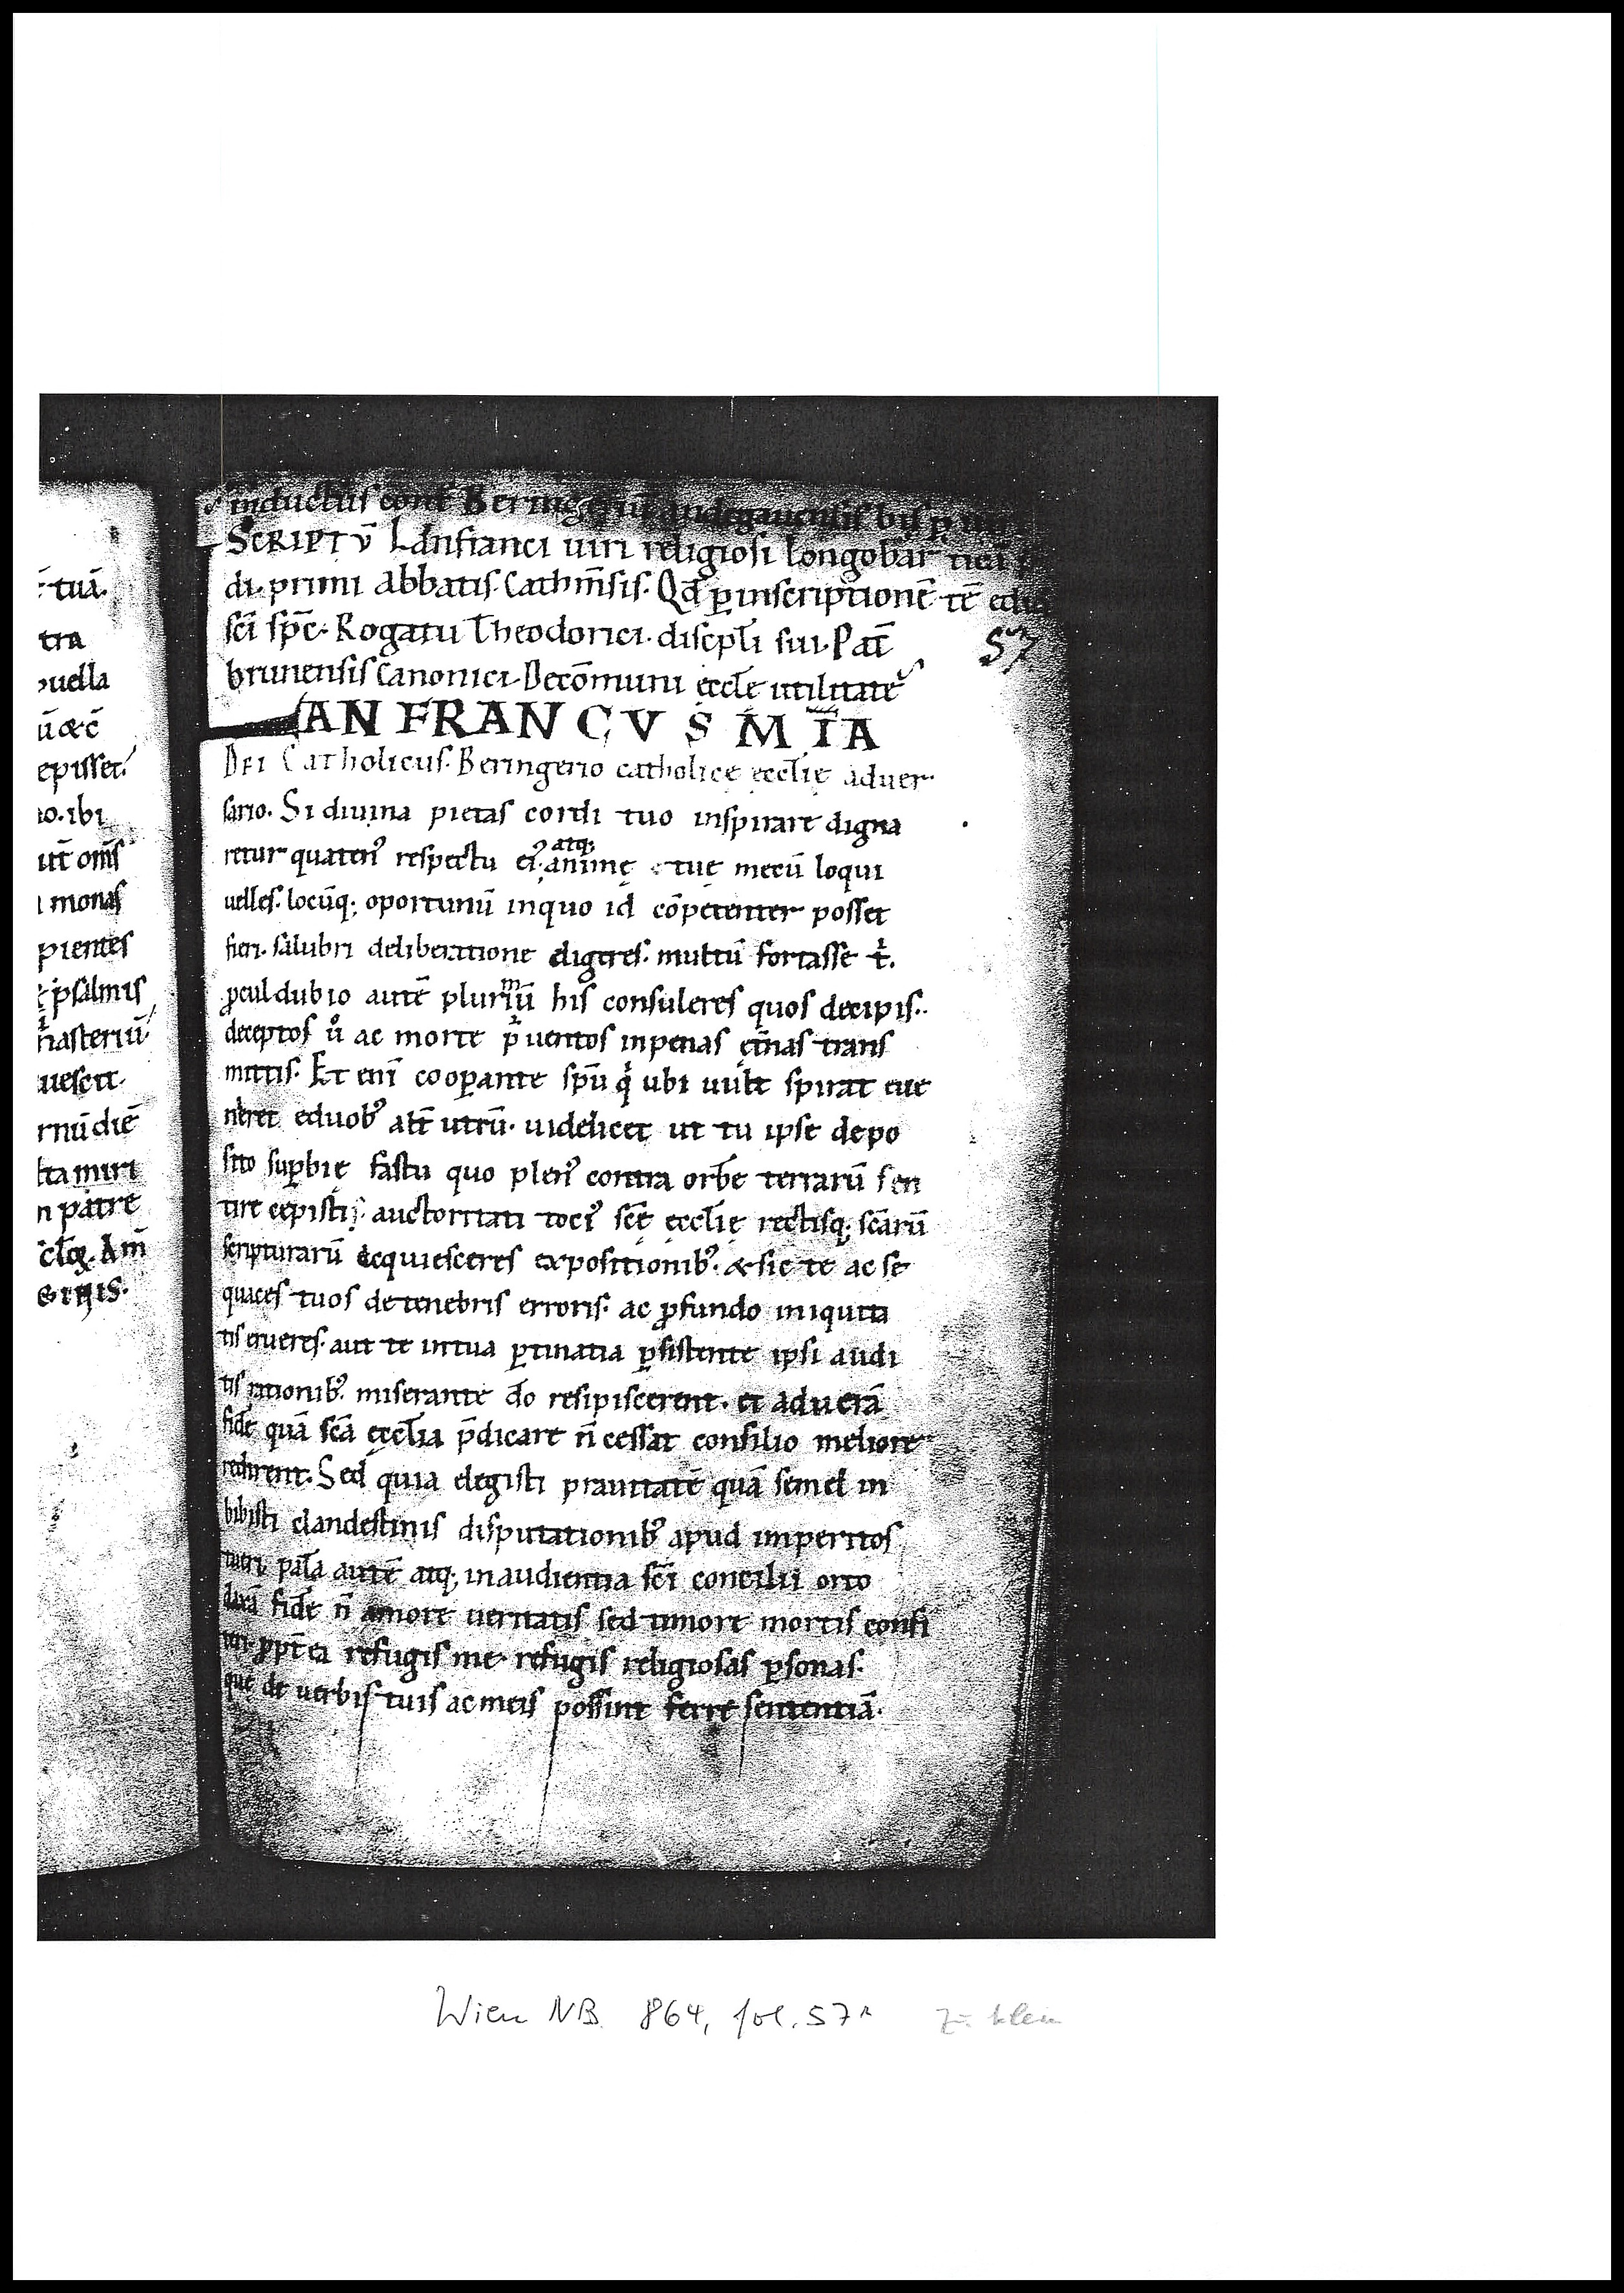 : tuā.
tra
uella
ū &c̄
episset.
o. ibi
ut om̄s
monas
pientes
psalmis
nasteriū.
uescit.
rnū diē
ta miri
n patre
inductus cont̄ Beringeriū andegauensis
SCRIPTV̄ Lanfranci uiri religiosi longobar
di. primi abbatis. Cathm̄sis. Qd̄ ꝑinscriptionē
sc̄i sp̄c. Rogatu Theodorici. discipl̄i sui. Pat̄
brunensis Canonici. Decōmuni ęccl̄e utilitate
57
LANFRANCVS M̄IA
DEI Catholicus. Beringerio catholicę ęccl̄ię aduer
sario. Si diuina pietas cordi tuo inspirare digna
retur quaten᾽ respectu ei᾽ atq; animę tuę mecū loqui
uelles. locūq; oportunū inquo id cōpetenter posset
fieri. salubri deliberatione eligeres. multū fortasse ł.
ꝓculdubio autē plurimū his consuleres quos decipis.
deceptos uͦ ac morte p̄uentos inpenas ęt̄nas trans
mittis. Et enī cooꝑante sp̄u qͥ ubi uult spirat eue
niret eduob᾽ alt̄ utrū. uidelicet ut tu ipse depo
sito suꝑbię fastu quo plen᾽ contra orbē terrarū sen
tire cepisti; auctoritati toci᾽ sc̄ę ęccl̄ię rectisq; sc̄arū
scripturarū acquiesceres expositionib᾽. & sic te ac se
quaces tuos de tenebris erroris. ac ꝓfundo iniquita
tis erueres. aut te intua ꝑtinatia ꝑsistente ipsi audi
tis rationib᾽. miserante do̅ resipiscerent. et aduerā
fidē quā sc̄a ęccl̄ia p̄dicare n̄ cessat consilio meliore
redirent. Sed quia elegisti prauitatē quā semel in
bibisti clandestinis disputationib᾽ apud imperitos
tueri, palā autē atq; inaudientia sc̄i concilii orto
doxā fidē n̄ amore ueritatis sed timore mortis confi
teri. ꝓpt̄ea refugis me. refugis religiosas ꝑsonas.
quę de uerbis tuis ac meis possint ferre sententiā.
Wien NB 864, fol. 57r zu klein